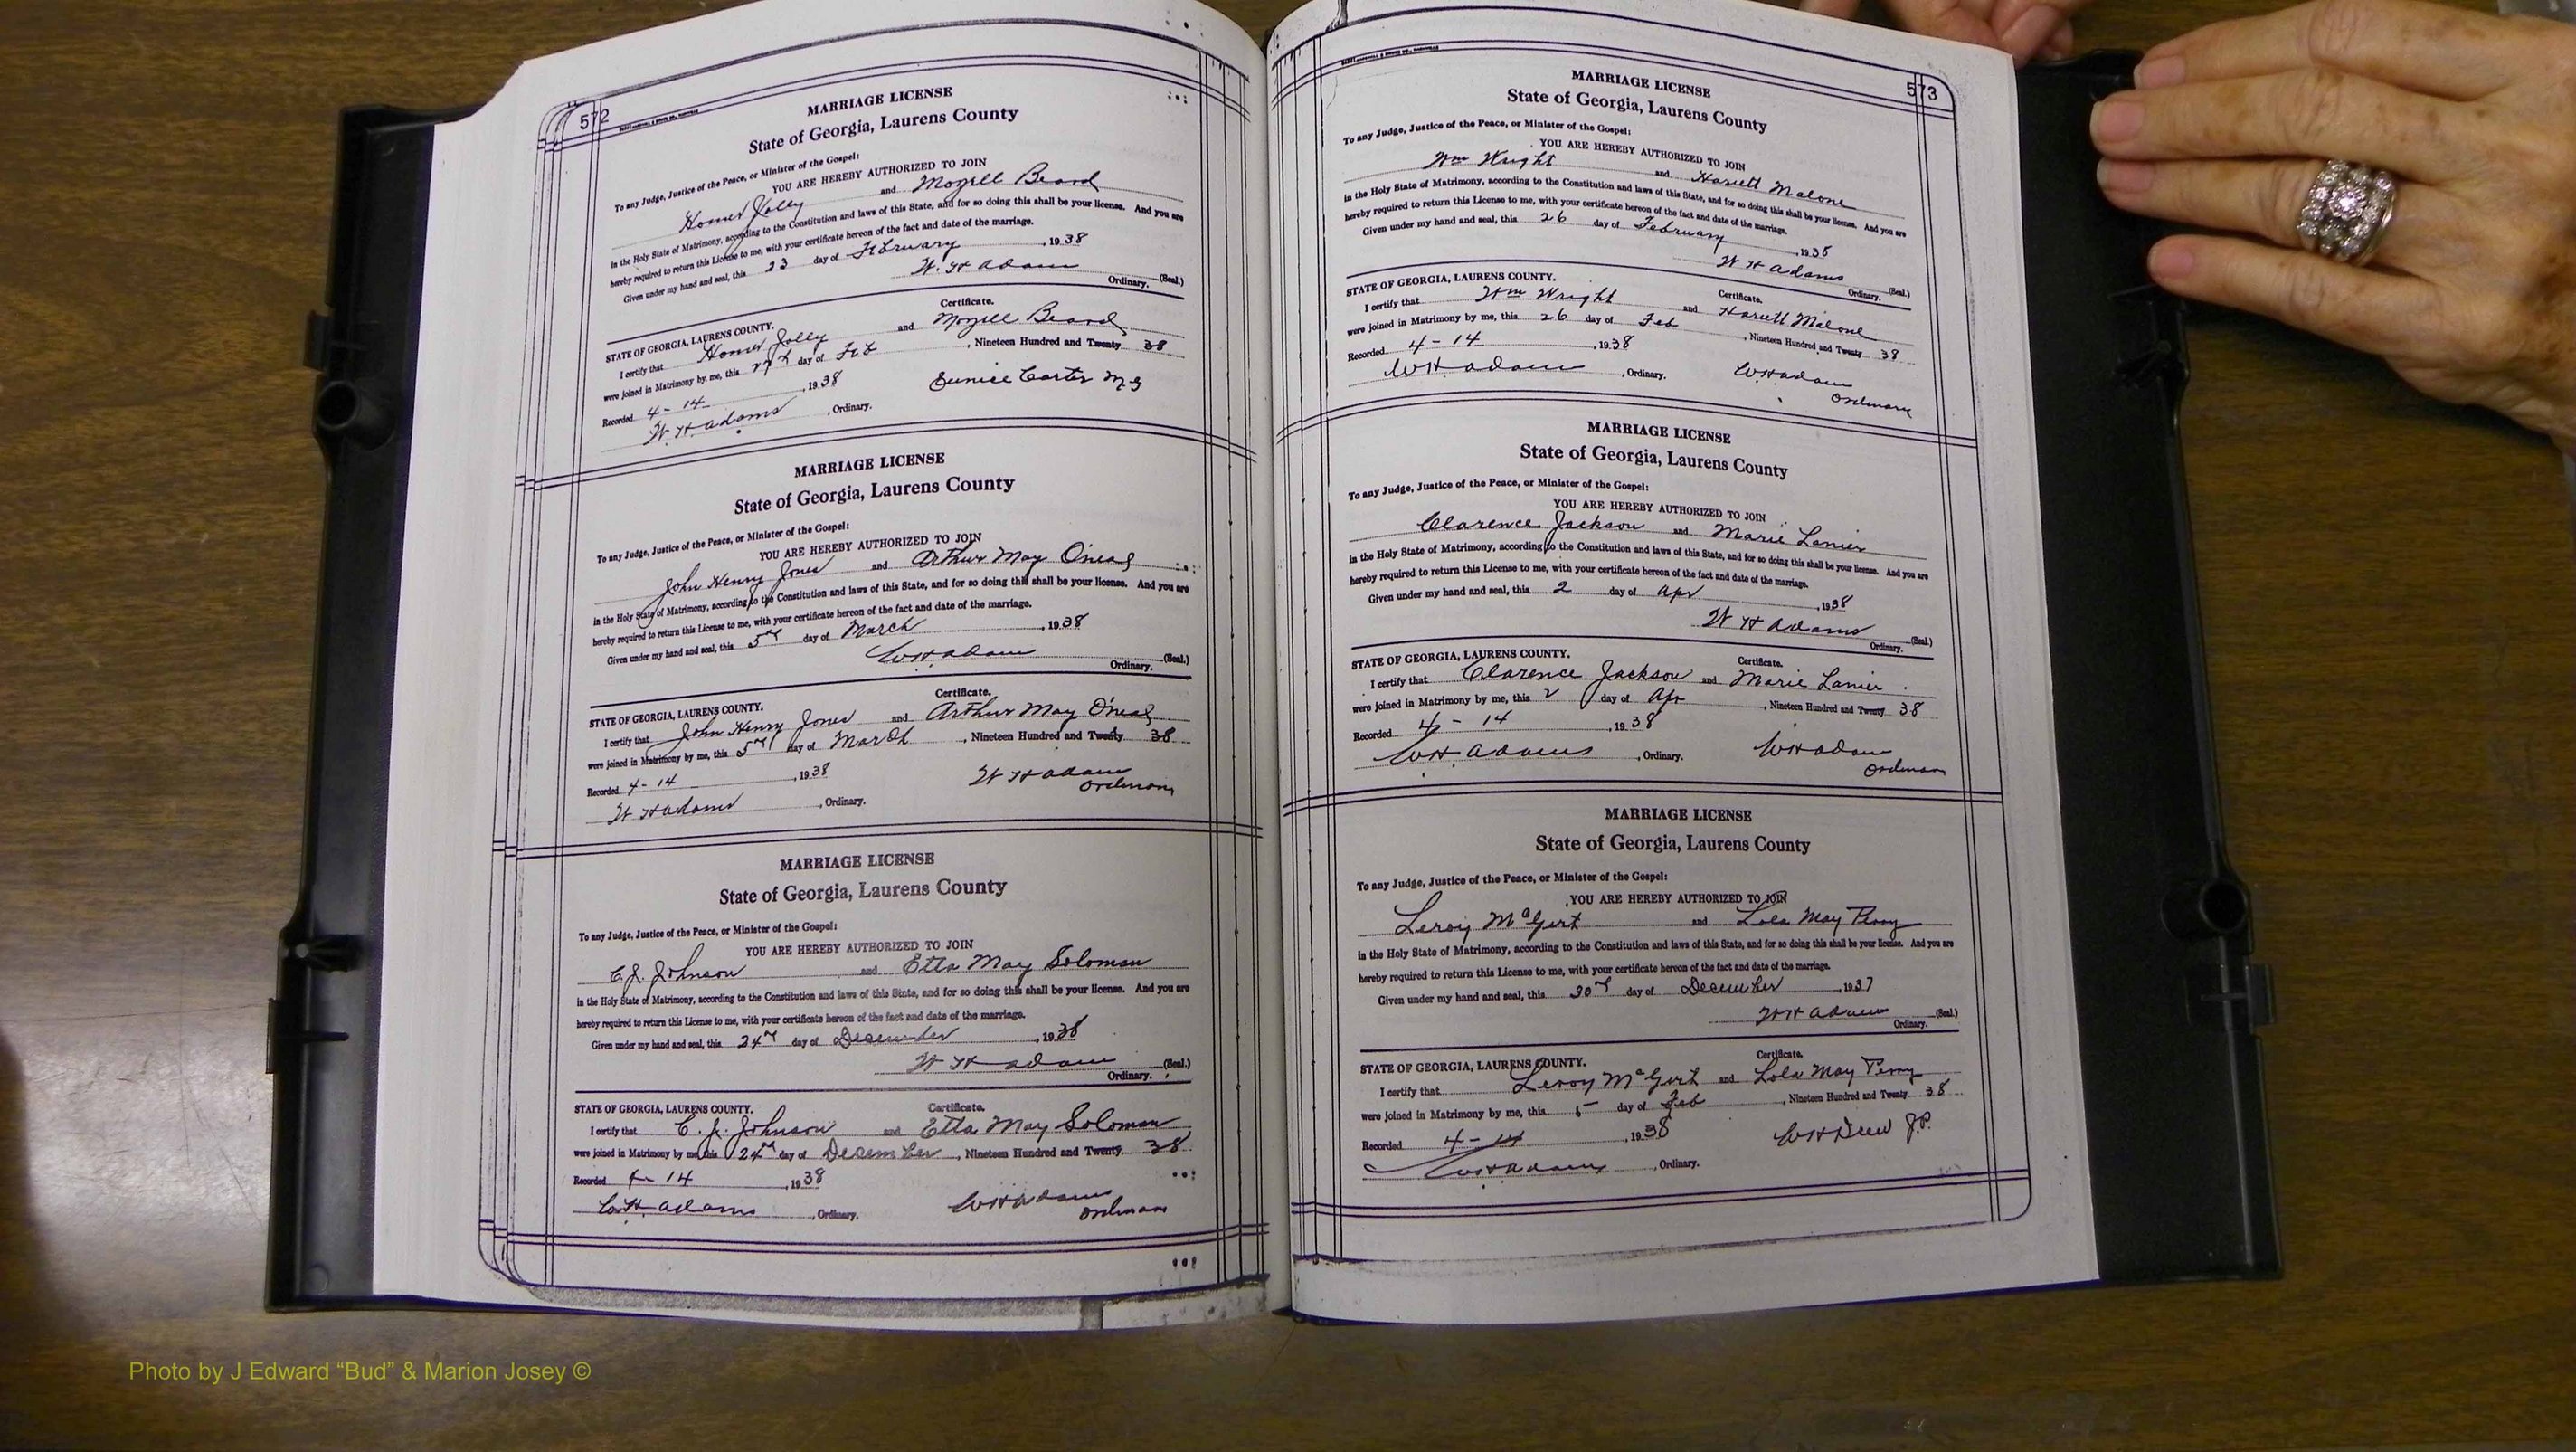 572
MARRIAGE LICENSE
State of Georgia, Laurens County
To any Judge, Justice of the Peace, or Minister of the Gospel:
YOU ARE HEREBY AUTHORIZED TO JOIN
Homer Jolly and Mozell Beard
in the Holy State of Matrimony, according to the Constitution and laws of this State, and for so doing this shall be your license. And you are
hereby required to return this License to me, with your certificate hereon of the fact and date of the marriage.
Given under my hand and seal, this 23 day of February, 1938
W. H Adams (Seal.)
Ordinary.
Certificate.
STATE OF GEORGIA, LAURENS COUNTY.
I certify that Homer Jolly and Mozell Beard
were joined in Matrimony by me, this 27th day of Feb, Nineteen Hundred and Twenty 38
Recorded 4-14, 1938 Eunice Carter M.G
W. H. Adams, Ordinary.
MARRIAGE LICENSE
State of Georgia, Laurens County
To any Judge, Justice of the Peace, or Minister of the Gospel:
YOU ARE HEREBY AUTHORIZED TO JOIN
John Henry Jones and Arthur May O'neal
in the Holy State of Matrimony, according to the Constitution and laws of this State, and for so doing this shall be your license. And you are
hereby required to return this License to me, with your certificate hereon of the fact and date of the marriage.
Given under my hand and seal, this 5th day of March, 1938
W. H. Adams (Seal.)
Ordinary.
Certificate.
STATE OF GEORGIA, LAURENS COUNTY.
I certify that John Henry Jones and Arthur May O'neal
were joined in Matrimony by me, this 5th day of March, Nineteen Hundred and Twenty 38
Recorded 4-14, 1938 W H Adams
Ordinary
W H Adams, Ordinary.
MARRIAGE LICENSE
State of Georgia, Laurens County
To any Judge, Justice of the Peace, or Minister of the Gospel:
YOU ARE HEREBY AUTHORIZED TO JOIN
C. J. Johnson and Etta May Soloman
in the Holy State of Matrimony, according to the Constitution and laws of this State, and for so doing this shall be your license. And you are
hereby required to return this License to me, with your certificate hereon of the fact and date of the marriage.
Given under my hand and seal, this 24th day of December, 1938
W H Adams (Seal.)
Ordinary.
Certificate.
STATE OF GEORGIA, LAURENS COUNTY.
I certify that C. J. Johnson and Etta May Soloman
were joined in Matrimony by me, this 24th day of December, Nineteen Hundred and Twenty 38
Recorded 4-14, 1938 W H Adams
Ordinary
W. H. Adams, Ordinary.
573
MARRIAGE LICENSE
State of Georgia, Laurens County
To any Judge, Justice of the Peace, or Minister of the Gospel:
YOU ARE HEREBY AUTHORIZED TO JOIN
Wm Wright and Hariett Malone
in the Holy State of Matrimony, according to the Constitution and laws of this State, and for so doing this shall be your license. And you are
hereby required to return this License to me, with your certificate hereon of the fact and date of the marriage.
Given under my hand and seal, this 26 day of February, 1938
W H Adams (Seal.)
Ordinary.
Certificate.
STATE OF GEORGIA, LAURENS COUNTY.
I certify that Wm Wright and Hariett Malone
were joined in Matrimony by me, this 26 day of Feb, Nineteen Hundred and Twenty 38
Recorded 4-14, 1938 W H Adams
Ordinary
W H Adams, Ordinary.
MARRIAGE LICENSE
State of Georgia, Laurens County
To any Judge, Justice of the Peace, or Minister of the Gospel:
YOU ARE HEREBY AUTHORIZED TO JOIN
Clarence Jackson and Marie Lanier
in the Holy State of Matrimony, according to the Constitution and laws of this State, and for so doing this shall be your license. And you are
hereby required to return this License to me, with your certificate hereon of the fact and date of the marriage.
Given under my hand and seal, this 2 day of Apr, 1938
W H Adams (Seal.)
Ordinary.
Certificate.
STATE OF GEORGIA, LAURENS COUNTY.
I certify that Clarence Jackson and Marie Lanier
were joined in Matrimony by me, this 2 day of Apr, Nineteen Hundred and Twenty 38
Recorded 4-14, 1938 W H Adams
Ordinary
W. H. Adams, Ordinary.
MARRIAGE LICENSE
State of Georgia, Laurens County
To any Judge, Justice of the Peace, or Minister of the Gospel:
YOU ARE HEREBY AUTHORIZED TO JOIN
Leroy and Lola May Perry
in the Holy State of Matrimony, according to the Constitution and laws of this State, and for so doing this shall be your license. And you are
hereby required to return this License to me, with your certificate hereon of the fact and date of the marriage.
Given under my hand and seal, this 30th day of December, 1937
W H Adams (Seal.)
Ordinary.
Certificate.
STATE OF GEORGIA, LAURENS COUNTY.
I certify that Leroy and Lola May Perry
were joined in Matrimony by me, this day of Feb, Nineteen Hundred and Twenty 38
Recorded 4-14, 1938 W H Drew J.P.
W H Adams, Ordinary.
Photo by J Edward “Bud” & Marion Josey ©